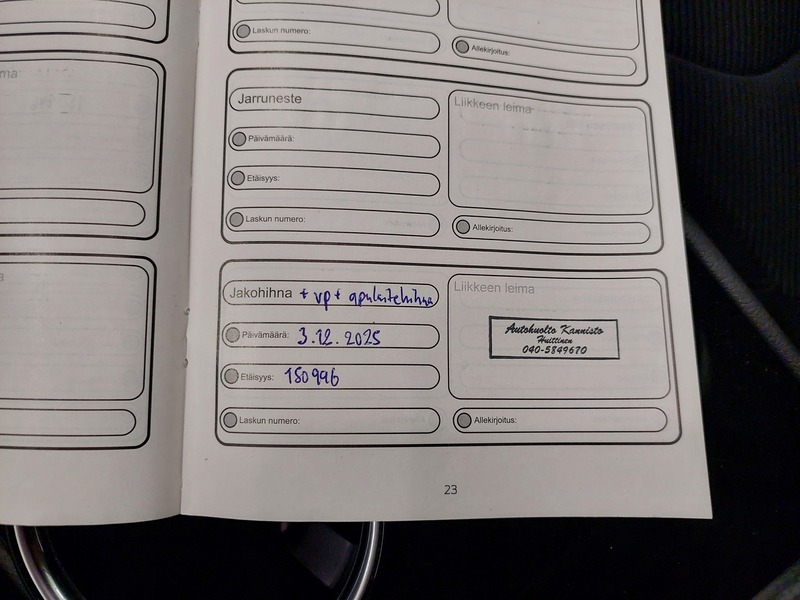 Laskun numero:
Allekirjoitus:
Jarruneste
Päivämäärä:
Etäisyys:
Laskun numero:
Liikkeen leima
Allekirjoitus:
Jakohihna + vp + apulaitehihna
Päivämäärä: 3.12.2025
Etäisyys: 150996
Laskun numero:
Liikkeen leima
Autohuolto Kannisto
Huittinen
040-5849670
Allekirjoitus:
23